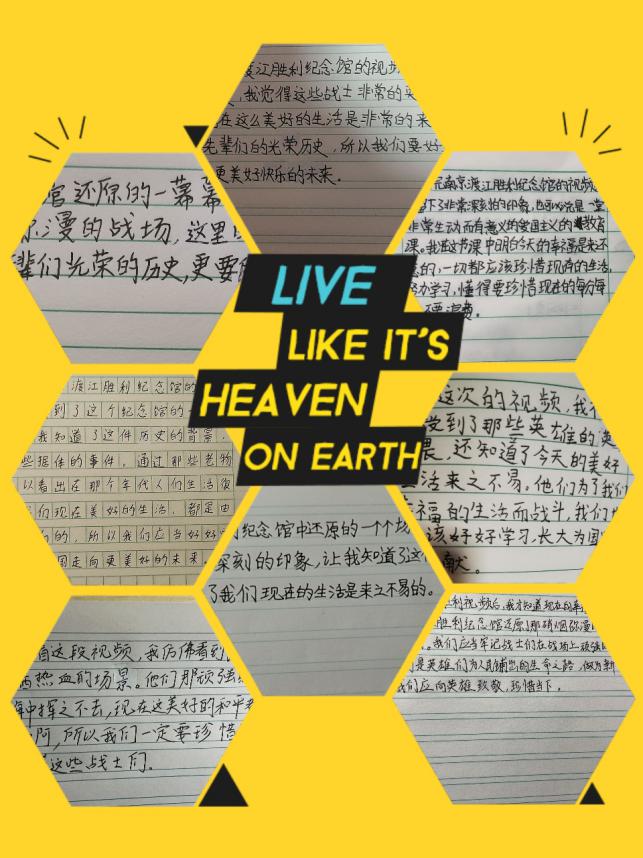 渡江胜利纪念馆的视频
我觉得这些战士非常的
在这么美好的生活是非常的来
先辈们的光荣历史，所以我们要好
更美好快乐的未来。
馆还原的一幕幕
漫的战场，这里
辈们光荣的历史，更要
完南京渡江胜利纪念馆的视频
留下了非常深刻的印象，也可以说是一堂
非常生动而有意义的爱国主义的教育
课。我通过这节课中明白今天的幸福是来之
的，一切都应该珍惜现有的生活，
努力学习，懂得要珍惜现在的每分每
LIVE
LIKE IT'S
HEAVEN
ON EARTH
渡江胜利纪念馆的
到了这个纪念馆的
我知道了这件历史的背景，
些据体的事件。通过那些老物
以看出在那个年代人们生活很
们现在美好的生活，都是由
的，所以我们应当好好
国走向更美好的未来。
这次的视频，我
受到了那些英雄的英
还知道了今天的美好
活来之不易。他们为了我们
幸福的生活而战斗，我们
该好好学习，长大为国
献。
纪念馆中还原的一个场
深刻的印象，让我知道了这
了我们现在的生活是来之不易的。
这段视频，我仿佛看到
热血的场景。他们那顽强
中挥之不去，现在这美好的和平
啊，所以我们一定要珍惜
这些战士们。
胜利视频后，我才知道现在的
胜利纪念馆还原了那硝烟弥漫
我们应当牢记战士们在战场上顽强
是英雄们为人民铺出的生命之路，做为新
我们应向英雄致敬，珍惜当下。